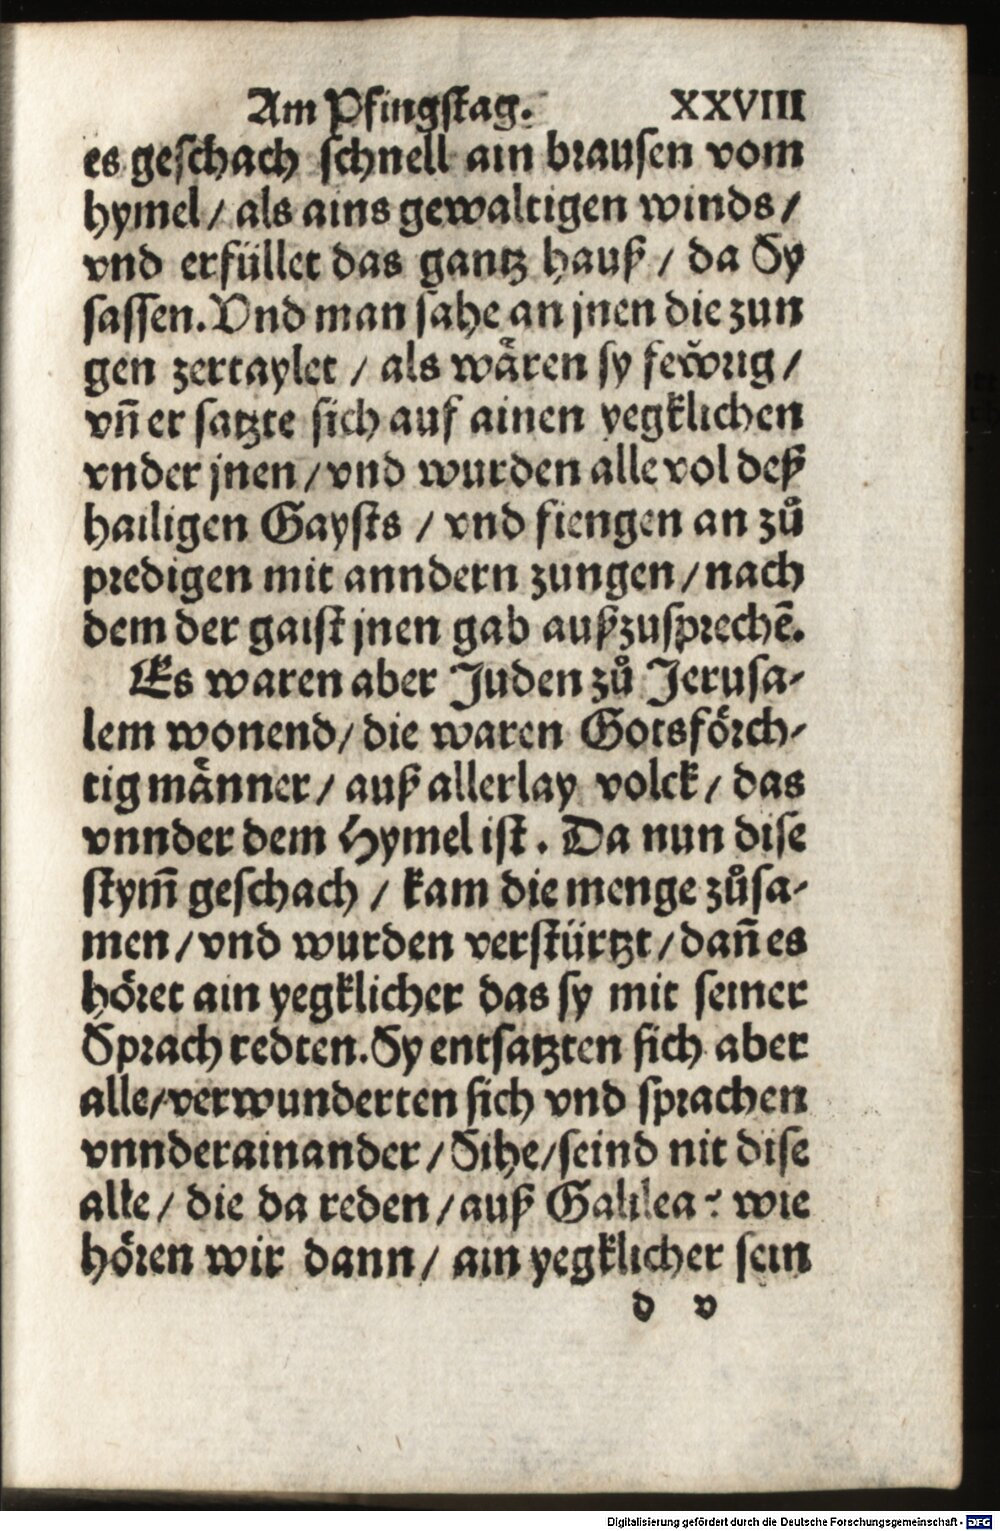 Am Pfingstag. XXVIII
es geschach schnell ain brausen vom
hymel / als ains gewaltigen winds /
vnd erfüllet das gantz hauß / da Sy
sassen. Vnd man sahe an jnen die zun
gen zertaylet / als wären sy feẅrig /
vn̄ er satzte sich auf ainen yegklichen
vnder jnen / vnd wurden alle vol deß
hailigen Gaysts / vnd fiengen an zů
predigen mit anndern zungen / nach
dem der gaist jnen gab außzusprechē.
Es waren aber Juden zů Jerusa-
lem wonend / die waren Gotsförch-
tig männer / auß allerlay volck / das
vnnder dem Hymel ist. Da nun dise
stym̄ geschach / kam die menge zůsa-
men / vnd wurden verstürtzt / dan̄ es
höret ain yegklicher das sy mit seiner
Sprach redten. Sy entsatzten sich aber
alle / verwunderten sich vnd sprachen
vnnderainander / Sihe / seind nit dise
alle / die da reden / auß Galilea? wie
hören wir dann / ain yegklicher sein
d v
Digitalisierung gefördert durch die Deutsche Forschungsgemeinschaft - DFG